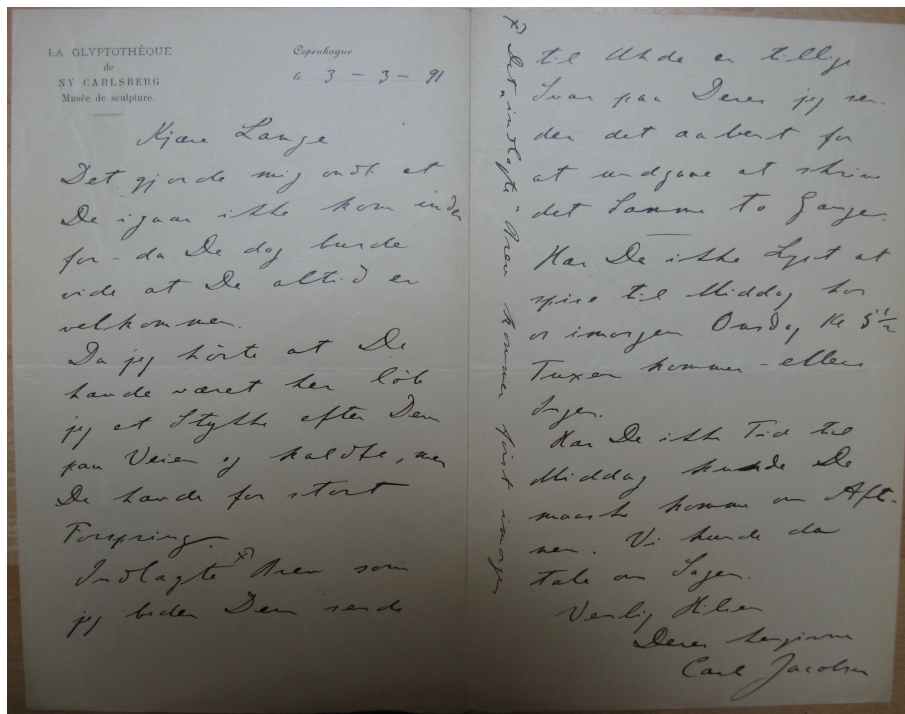 LA GLYPTOTHÈQUE
de
NY CARLSBERG
Musée de sculpture.
Copenhague
le 3 - 3 - 91
Kjære Lange
Det gjorde mig ondt at
De igaar ikke kom inden
for - da De dog burde
vide at De altid er
velkommen.
Da jeg hörte at De
havde været her löb
jeg et Stykke efter Dem
paa Veien og kaldte, men
De havde for stort
Forspring.
Indlagte x) Brev som
jeg beder Dem sende
til Uhde er tillige
Svar paa Deres jeg sen-
der det aabent for
at undgaae at skrive
det Samme to Gange.
Har De ikke Lyst at
spise til Middag hos
os imorgen Onsdag Kl 5 1/2
Tuxen kommer - ellers
Ingen.
Har De ikke Tid til
Middag kunde De
maaske komme om Afte-
nen. Vi kunde da
tale om Sagen.
Venlig Hilsen
Deres hengivne
Carl Jacobsen
x) Det "indlagte" Brev kommer först imorgen